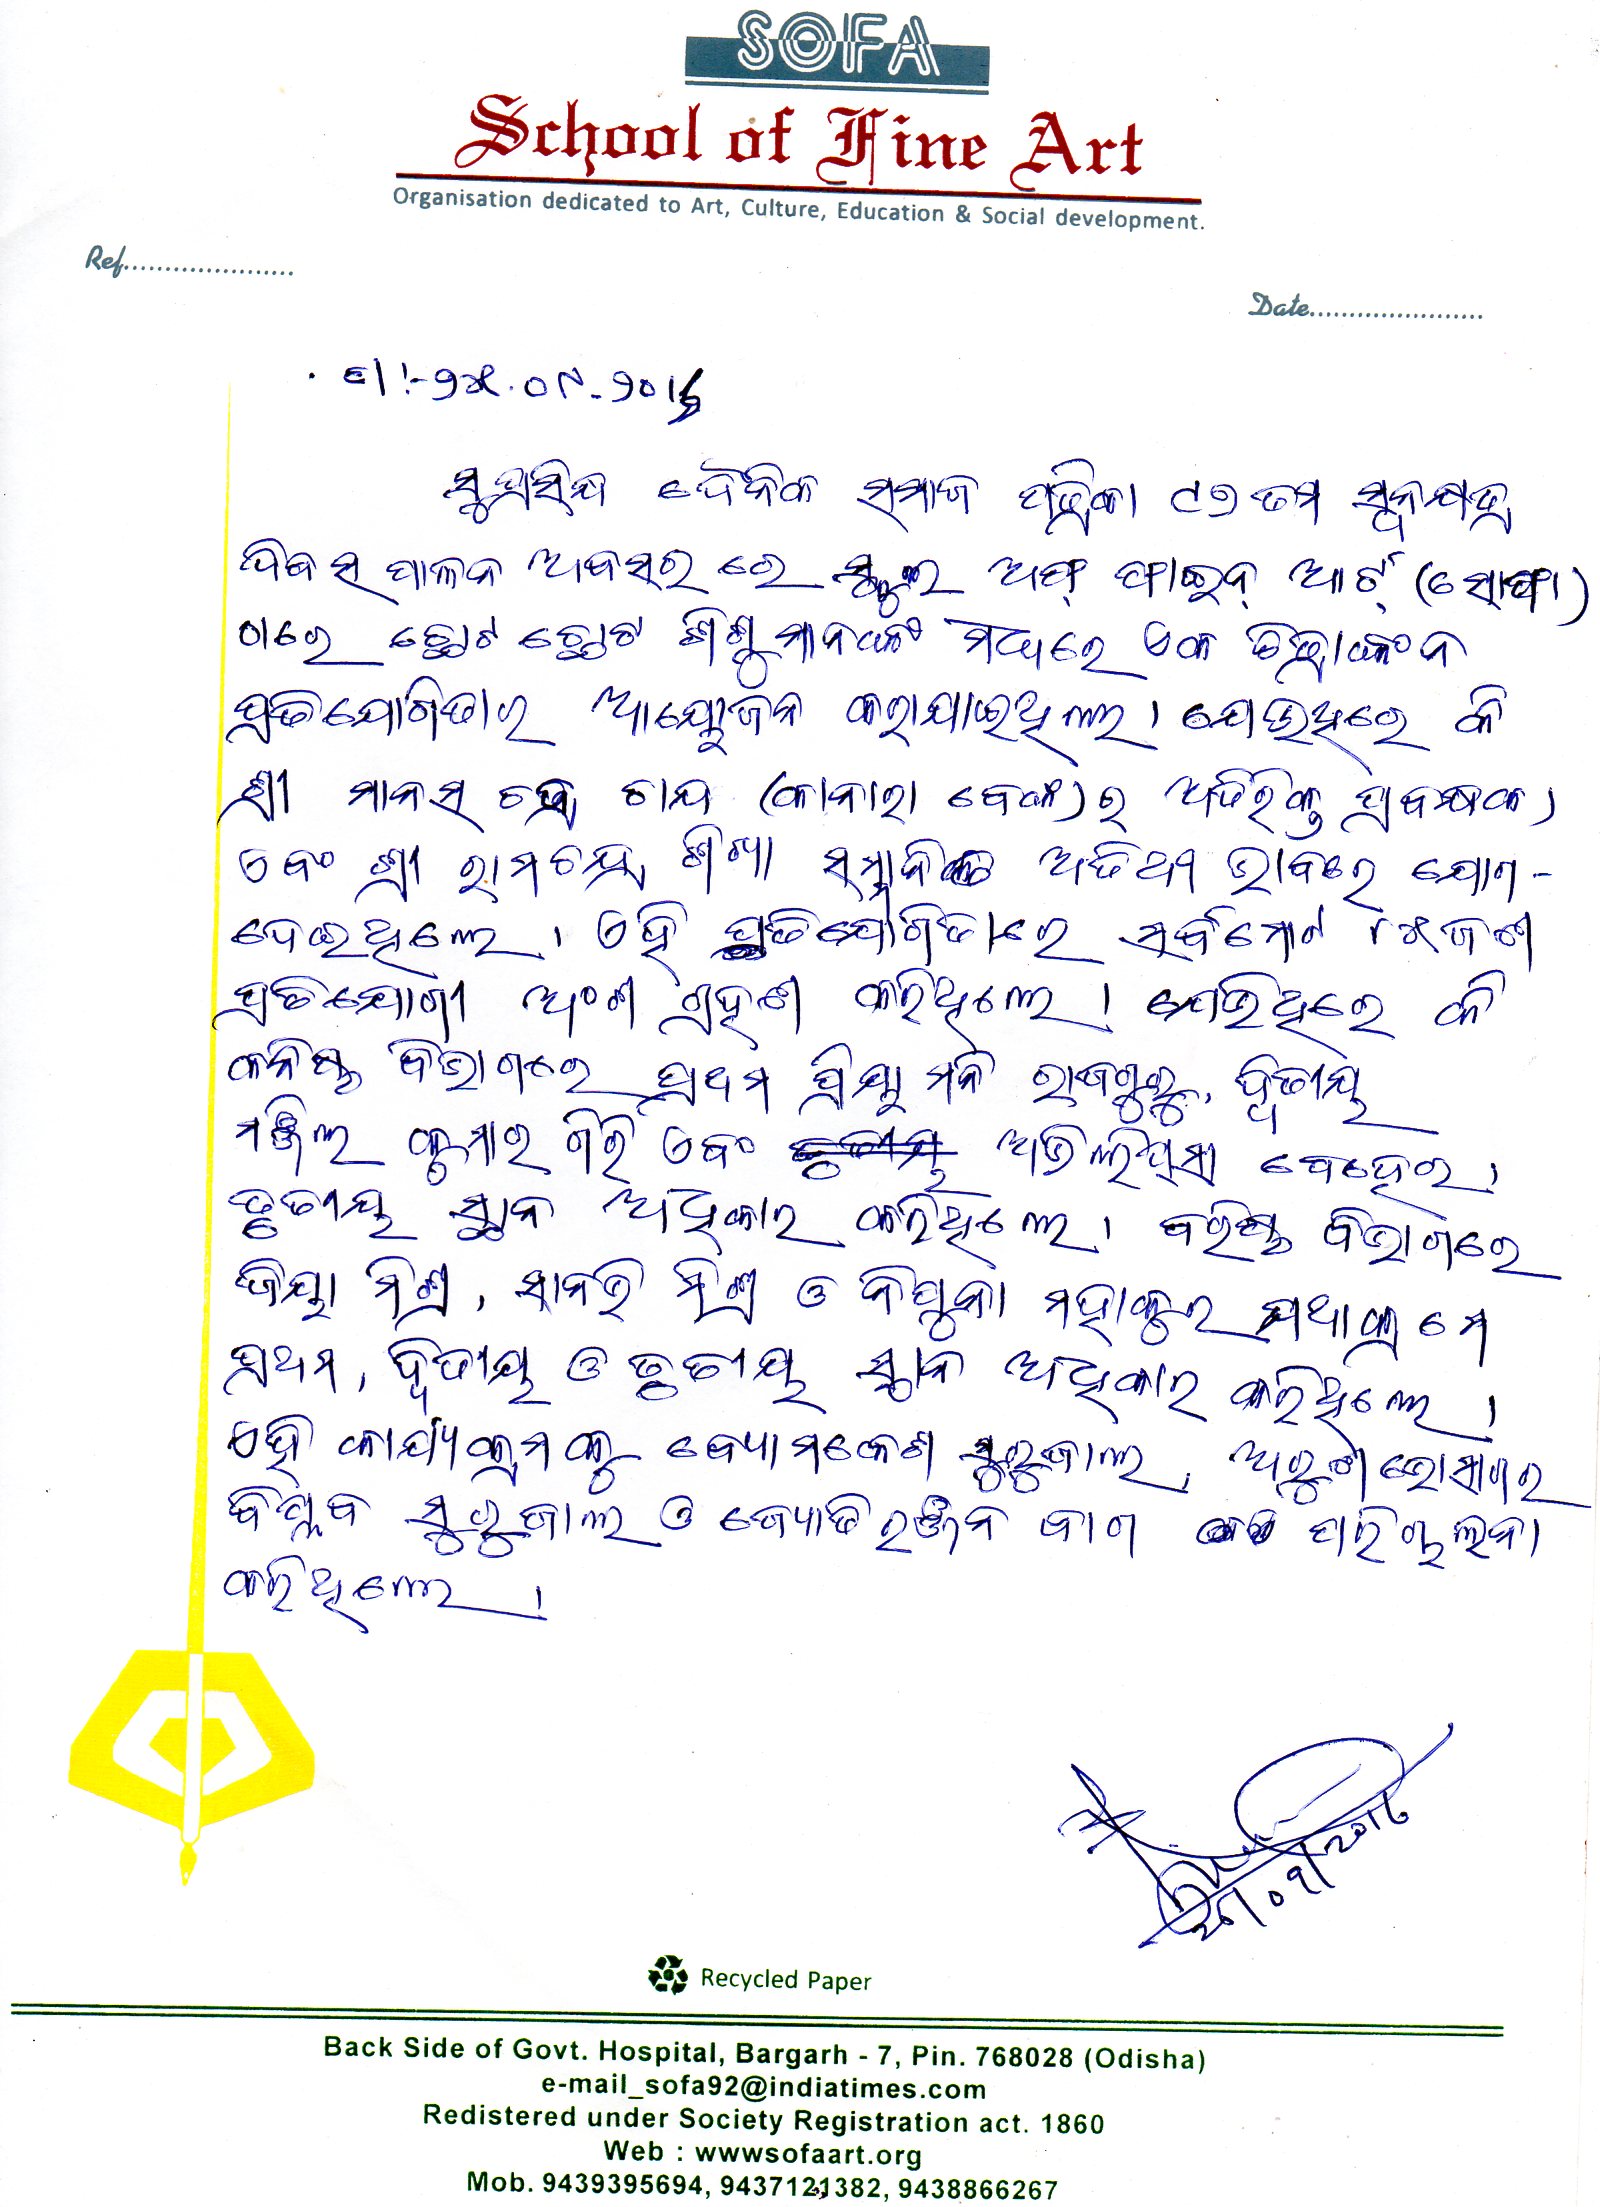 SOFA
School of Fine Art
Organisation dedicated to Art, Culture, Education & Social development.
Ref.....................
Date.....................
ସୁପ୍ରସିଦ୍ଧ ଦୈନିକ ସମାଜ ପତ୍ରିକା ୯୭ ତମ
ଦିବସ ପାଳନ ଅବସର ରେ ସ୍କୁଲ ଅଫ୍ ଫାଇନ୍ ଆର୍ଟ୍ (ସୋଫା)
ଠାରେ ଛୋଟ ଛୋଟ ଶିଶୁ ମାନଙ୍କ ମଧ୍ୟରେ ଏକ ଚିତ୍ରାଙ୍କନ
ପ୍ରତିଯୋଗିତାର ଆୟୋଜନ କରାଯାଇଥିଲା । ଯେଉଁଥିରେ କି
ଶ୍ରୀ ମାନସ ଚନ୍ଦ୍ର ଚାନ୍ଦ (କାନାରା ବେଙ୍କ)ର ଅତିରିକ୍ତ ପ୍ରବନ୍ଧକ,
ଏବଂ ଶ୍ରୀ ରାମଚନ୍ଦ୍ର ଶିଶା ସମ୍ମାନିତ ଅତିଥୀ ଭାବରେ ଯୋଗ-
ଦେଇଥିଲେ । ଏହି ପ୍ରତିଯୋଗିତାରେ ସର୍ବମୋଟ ୮୫ଜଣ
ପ୍ରତିଯୋଗୀ ଅଂଶ ଗ୍ରହଣ କରିଥିଲେ । ଯେଉଁଥିରେ କି
କନିଷ୍ଠ ବିଭାଗରେ ପ୍ରଥମ ପ୍ରିୟା ମନି ରାଜଗୁରୁ, ଦ୍ୱିତୀୟ
ମଞ୍ଜିଲ କୁମାର ଗିରି ଏବଂ ଅଭିଲିପ୍ସା ବେହେରା
ତୃତୀୟ ସ୍ଥାନ ଅଧିକାର କରିଥିଲେ । ବରିଷ୍ଠ ବିଭାଗରେ
ଜିୟା ମିଶ୍ର, ସାନଭି ମିଶ୍ର ଓ ନିପୁନା ମହାକୁର ଯଥାକ୍ରମେ
ପ୍ରଥମ, ଦ୍ୱିତୀୟ ଓ ତୃତୀୟ ସ୍ଥାନ ଅଧିକାର କରିଥିଲେ ।
ଏହି କାର୍ଯ୍ୟକ୍ରମକୁ ବ୍ୟୋମକେଶ ସୁରୁଜାଲ, ଅରୁଣ ଭୋସାଗର
ବିପ୍ଲବ ସୁରୁଜାଲ ଓ ଜ୍ୟୋତିରଞ୍ଜନ ବାଗ ପରିଚାଳନା
କରିଥିଲେ ।
Recycled Paper
Back Side of Govt. Hospital, Bargarh - 7, Pin. 768028 (Odisha)
e-mail_sofa92@indiatimes.com
Redistered under Society Registration act. 1860
Web : wwwsofaart.org
Mob. 9439395694, 9437121382, 9438866267